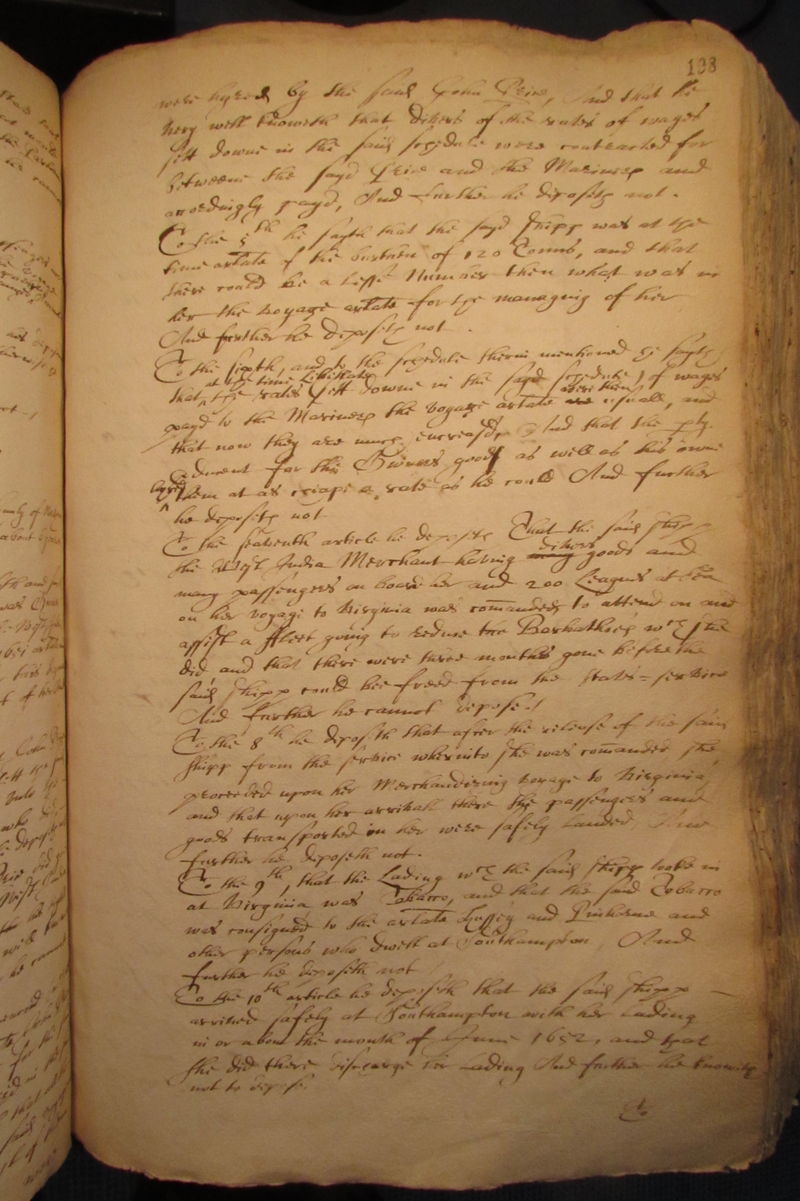 138
were hyred by the said John Price, And that he
very well knoweth that divers of the rates of wages
sett downe in the said scedule were contracted for
betweene the sayd Price and the Mariners and
accordingly payd, And further he deposeth not.
To the 5th he sayth that the sayd shipp was at the
time arlate of the burthen of 120 Tonns, and that
there could be a lesse Number then what was in
her the voyage arlate for the managing of her
And further he deposeth not.
To the sixth, and to the scedule therein mentioned he sayth
at the time
that the rates sett downe in the sayd scedule, of wages
were then
payd to the Mariners the voyage arlate usuall, and
that now they are much increased, And that the
for the Owners good as well as his owne
hyred them at as cheape a rate as he could And further
he deposeth not
To the seaventh article he deposeth That the said shipp
the West India Merchant having divers goods and
many passengers on board her and 200 Leagues at Sea
on her voyage to Virginia was comanded to attend on and
assist a Fleet going to reduce the Barbathoes wch she
did and that there were three months gone before the
said shipp could bee freed from the States service
And further he cannot depose.
To the 8th he deposeth that after the release of the said
shipp from the service whereinto she was comanded she
proceeded upon her Merchandizing voyage to Virginia
and that upon her arrivall there the passengers and
goods transported in her were safely landed And
further he deposeth not.
To the 9th, that the Lading wch the said shipp tooke in
at Virginia was Tobacco, and that the said Tobacco
was consigned to the arlate and and
other persons who dwell at Southampton, And
further he deposeth not
To the 10th article he deposeth that the said shipp
arrived safely at Southampton with her Lading
in or about the month of June 1652, and that
she did there discharge her Lading And further he knoweth
not to depose.
To